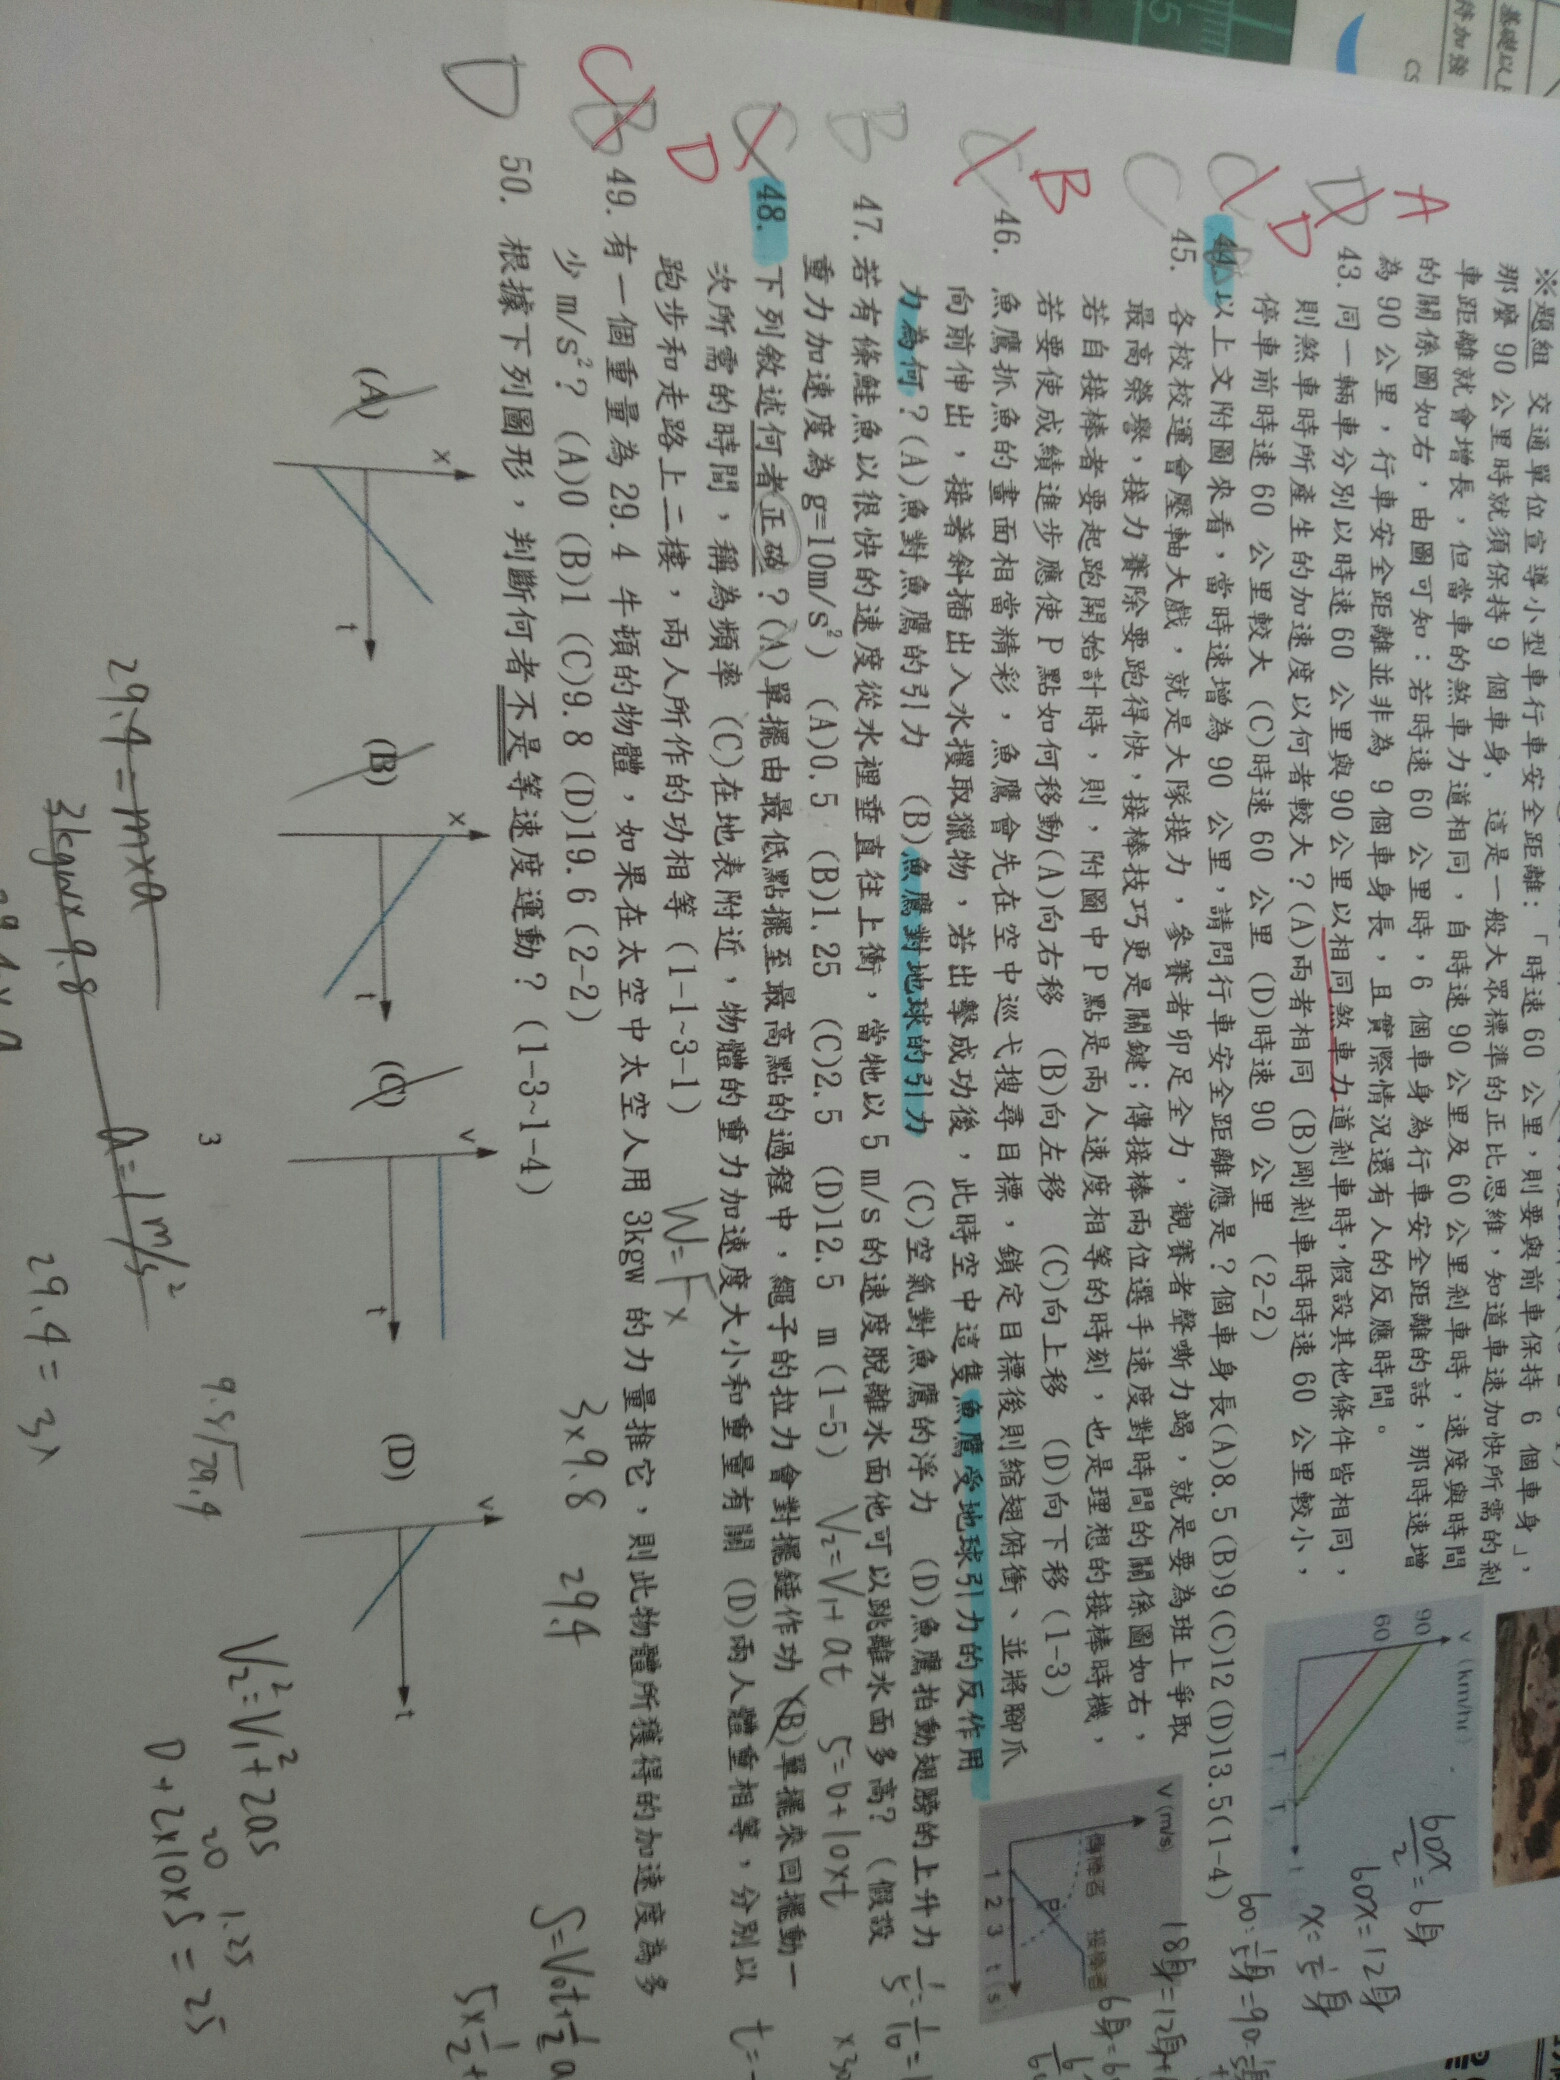 基礎以上
待加強
※題組 交通單位宣導小型車行車安全距離:「時速 60 公里,則要與前車保持 6 個車身」,
那麼 90 公里時就須保持 9 個車身, 這是一般大眾標準的正比思維,知道車速加快所需的剎
車距離就會增長,但當車的煞車力道相同,自時速 90 公里及 60 公里剎車時,速度與時間
的關係圖如右,由圖可知:若時速 60 公里時,6 個車身為行車安全距離的話,那時速增
為 90 公里,行車安全距離並非為 9 個車身長,且實際情況還有人的反應時間。
A
D
43. 同一輛車分別以時速 60 公里與 90 公里以相同煞車力道剎車時,假設其他條件皆相同,
則煞車時所產生的加速度以何者較大?(A)兩者相同 (B)剛剎車時時速 60 公里較小,
停車前時速 60 公里較大 (C)時速 60 公里 (D)時速 90 公里 (2-2)
D
44.以上文附圖來看,當時速增為 90 公里,請問行車安全距離應是?個車身長(A)8.5(B)9(C)12(D)13.5(1-4)
v (km/hr)
90
60
T T t
C
45. 各校校運會壓軸大戲,就是大隊接力,參賽者卯足全力,觀賽者聲嘶力竭,就是要為班上爭取
最高榮譽,接力賽除要跑得快,接棒技巧更是關鍵;傳接棒兩位選手速度對時間的關係圖如右,
若自接棒者要起跑開始計時,則,附圖中 P 點是兩人速度相等的時刻,也是理想的接棒時機,
若要使成績進步應使 P 點如何移動(A)向右移 (B)向左移 (C)向上移 (D)向下移 (1-3)
V (m/s)
傳棒者 接棒者
P
1 2 3 t(s)
B
C
46. 魚鷹抓魚的畫面相當精彩,魚鷹會先在空中巡弋搜尋目標,鎖定目標後則縮翅俯衝、並將腳爪
向前伸出,接著斜插出入水攫取獵物,若出擊成功後,此時空中這隻魚鷹受地球引力的反作用
力為何?(A)魚對魚鷹的引力 (B)魚鷹對地球的引力 (C)空氣對魚鷹的浮力 (D)魚鷹拍動翅膀的上升力
B
47. 若有條鮭魚以很快的速度從水裡垂直往上衝,當牠以 5 m/s 的速度脫離水面他可以跳離水面多高?(假設
重力加速度為 g=10m/s²) (A)0.5 (B)1.25 (C)2.5 (D)12.5 m (1-5)
V₂=V₁+at
5=0+10xt
C
D
48. 下列敘述何者正確?(A)單擺由最低點擺至最高點的過程中,繩子的拉力會對擺錘作功 (B)單擺來回擺動一
次所需的時間,稱為頻率 (C)在地表附近,物體的重力加速度大小和重量有關 (D)兩人體重相等,分別以
跑步和走路上二樓,兩人所作的功相等 (1-1~3-1)
W=Fx
C
B
49. 有一個重量為 29.4 牛頓的物體,如果在太空中太空人用 3kgw 的力量推它,則此物體所獲得的加速度為多
少 m/s²? (A)0 (B)1 (C)9.8 (D)19.6 (2-2)
3x9.8 29.4
D
50. 根據下列圖形,判斷何者不是等速度運動? (1-3~1-4)
(A) x t
(B) x t
(C) v t
(D) v t
60x/2=6身
60x=12身
x=1/5身
S=V₀t+1/2a
V₂²=V₁²+2as
20 1.25
0+2x10xS=25
29.4=mxa
3kgwx9.8
a=1m/s²
9.8√29.4
3
29.4=3x